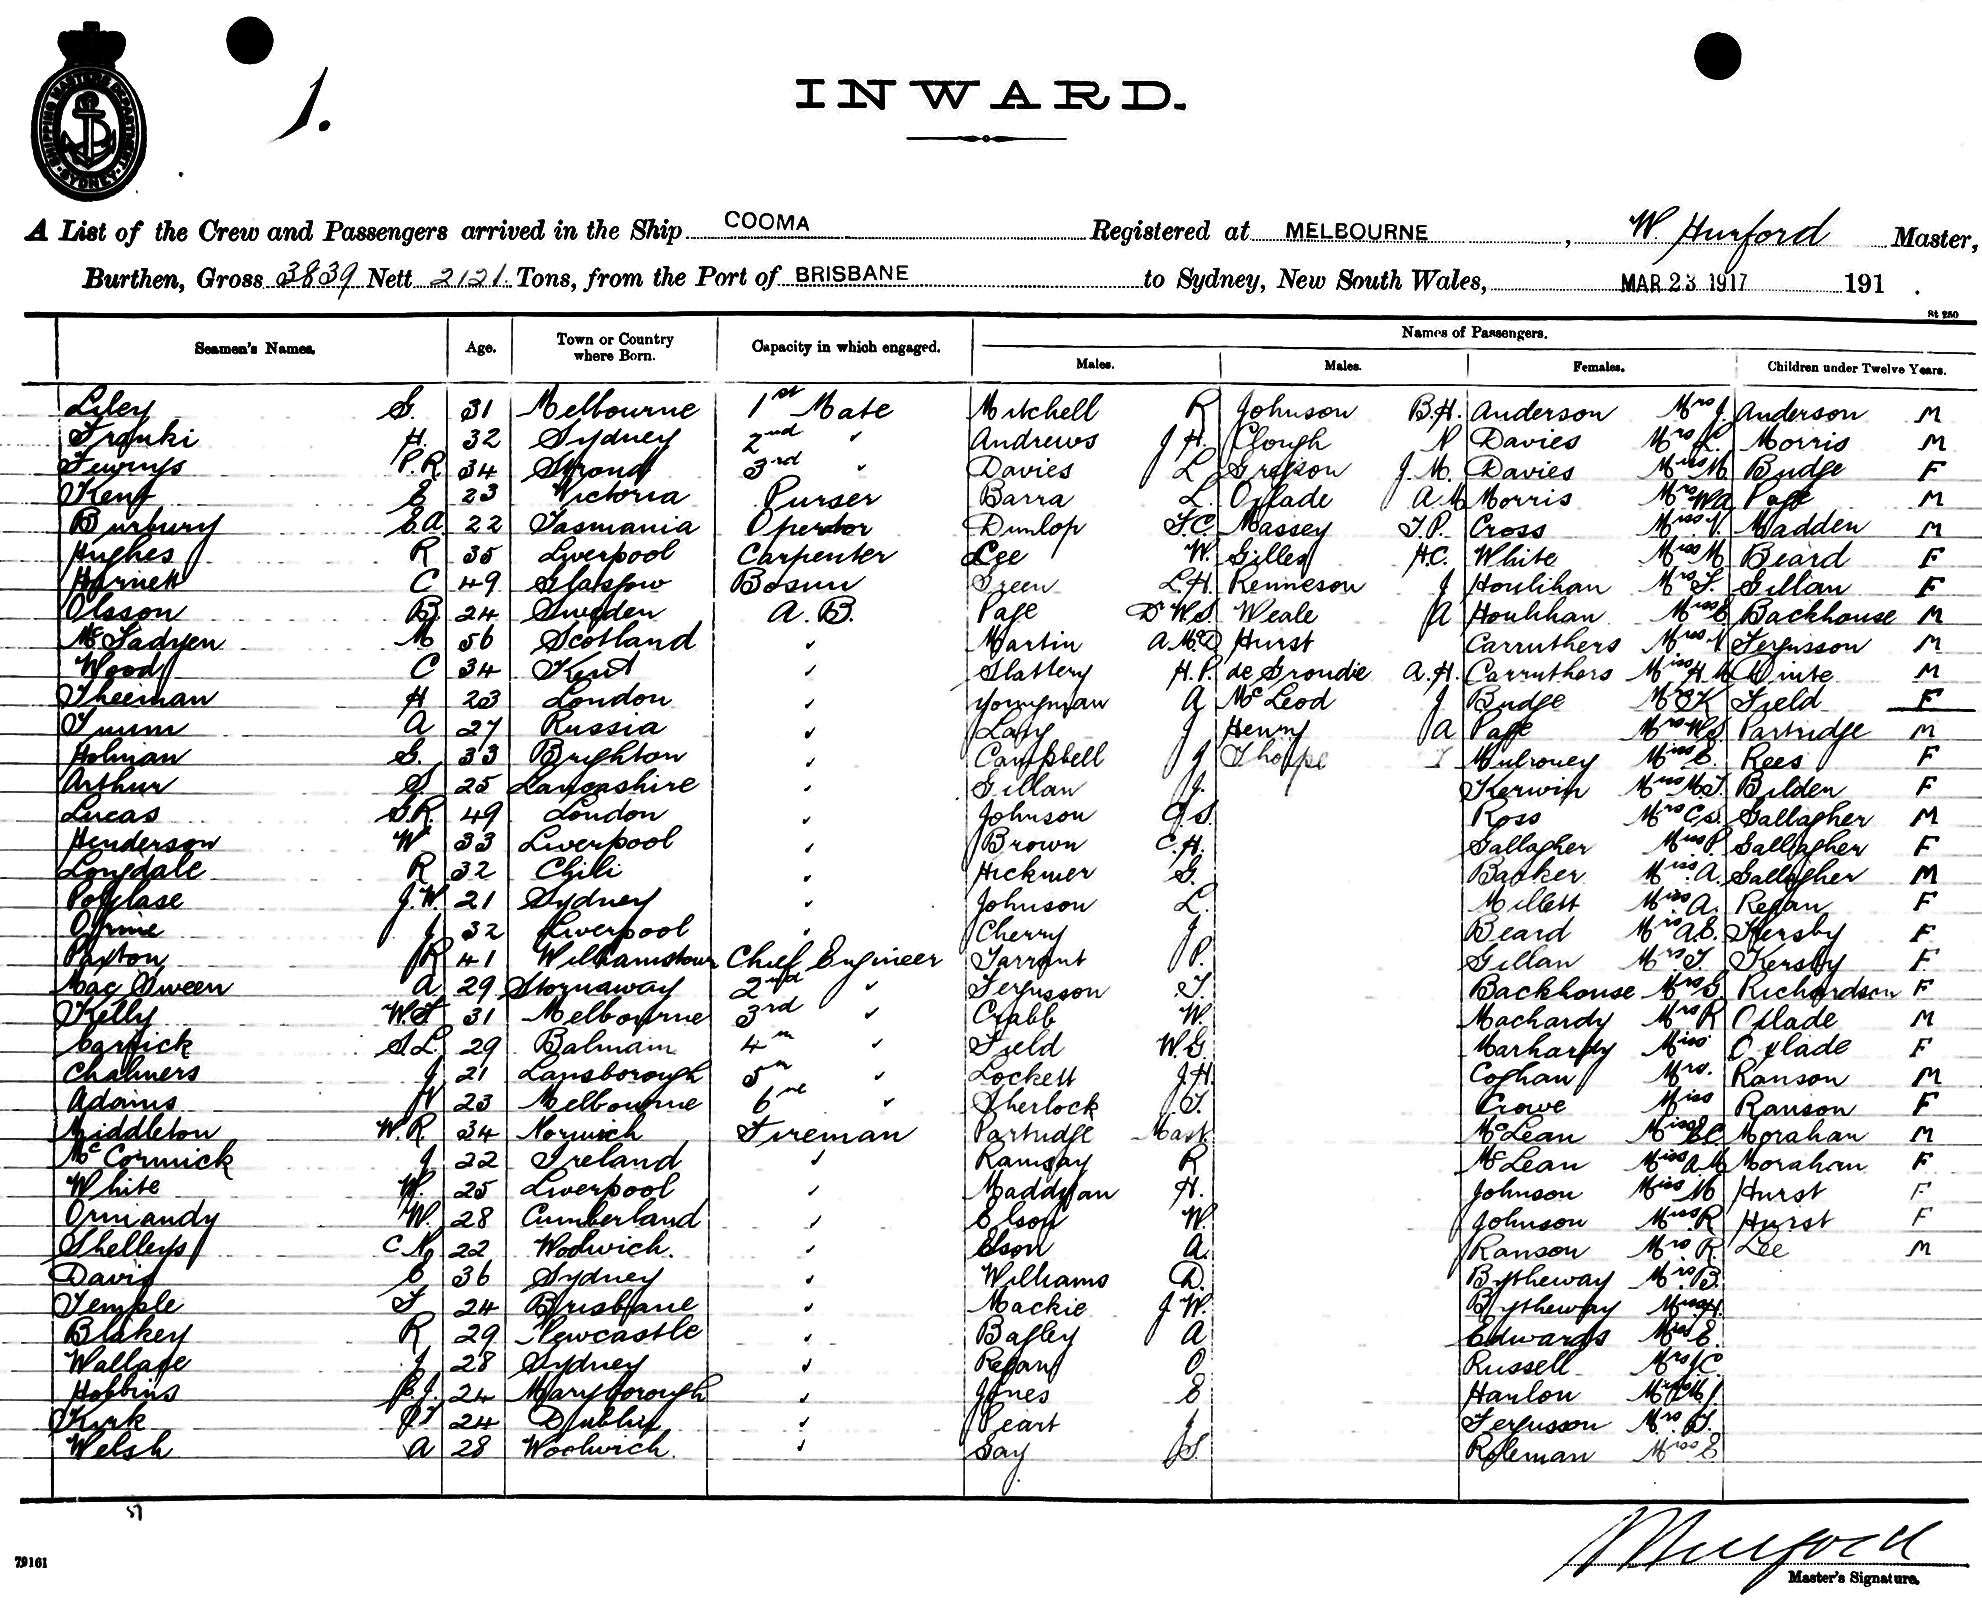 SHIPPING MASTERS DEPARTMENT SYDNEY
1.
INWARD.
A List of the Crew and Passengers arrived in the Ship COOMA Registered at MELBOURNE, W. Hurford Master,
Burthen, Gross 3839 Nett 2121. Tons, from the Port of BRISBANE to Sydney, New South Wales, MAR 23 1917 191 .
St 250
Seamen's Names. Age. Town or Country where Born. Capacity in which engaged. Names of Passengers.
Males. Males. Females. Children under Twelve Years.
Liley S. 31 Melbourne 1st Mate Mitchell R Johnson B.H. Anderson Mrs J. Anderson M
Franki H. 32 Sydney 2nd " Andrews J H. Clough N Davies Mrs Morris M
P.R. 34 Stroud 3rd " Davies L J. M. Davies Miss M Budge F
Kent E 23 Victoria Purser Barra L. Oxlade A M Morris Mrs WA Page M
Burbury E A. 22 Tasmania Operator Dunlop F.C. Massey T.P. Cross Miss Madden M
Hughes R 35 Liverpool Carpenter Lee W. Gilles H.C. White Miss M Beard F
Harnett C 49 Glasgow Bosun Green L.H. Renneson J Houlihan Mrs T. Gillan F
Olsson B. 24 Sweden A. B. Page D W.S. Weale A Houlihan Miss E Backhouse M
McFadyen M 56 Scotland " Martin A McD Hurst Carruthers Mrs Fergusson M
Wood C 34 Kent " Slattery H.P. de Groudie A.H. Carruthers Miss H M White M
Theeman H 23 London " Youngman A McLeod J Budge Mrs K Field F
A 27 Russia " J Henry A Page Mrs W.S. Partridge M
Holman G. 33 Brighton " Campbell J Thorpe Mulroney Miss E. Rees F
Arthur S. 25 Lancashire " Gillan J. Kerwin Miss M.T. Bilden F
Lucas G.R. 49 London " Johnson C.S. Ross Mrs C.S. Gallagher M
Henderson W 33 Liverpool " Brown C.H. Gallagher Miss P. Gallagher F
Longdale R 32 Chili " Hickmer G. Barker Miss. A. Gallagher M
Polglase J.W. 21 Sydney " Johnson L. Millett Miss A. Regan F
J 32 Liverpool " Cherry J Beard Mrs A.E. Kersby F
Paxton R 41 Williamstown Chief Engineer Tarrant P. Gillan Mrs T. Kersby F
Mac Sween A. 29 Stornaway 2nd " Fergusson T. Backhouse Mrs G Richardson F
Kelly W.F 31 Melbourne 3rd " Crabb W. Machardy Mrs R Oxlade M
Carrick S.L. 29 Balmain 4th " Field W.G. Marhardy Miss Oxlade F
Chalmers J. 21 Lansborough 5th " Lockett J.H. Coghan Mrs. Ranson M
Adams N 23 Melbourne 6th " Sherlock T. Crowe Miss Ranson F
Middleton W.R. 34 Norwich Fireman Partridge Mast McLean Miss E.C. Morahan M
McCormick J 22 Ireland " Ramsay R McLean Miss A M Morahan F
White W. 25 Liverpool " Maddigan H. Johnson Miss M Hurst F
Ormandy W. 28 Cumberland " Elson W. Johnson Miss R Hurst F
C N. 22 Woolwich. " Elson A. Ranson Mrs R. Lee M
David E 36 Sydney " Williams D. Bytheway Mrs B.
Temple F 24 Brisbane " Mackie J W. Bytheway Miss H.
Blakey R 29 Newcastle " Bagley A Edwards Miss E.
Wallace J 28 Sydney " Regan O. Russell Mrs J C.
Hobbins P.J. 24 Maryborough " Jones E Hanlon
Kirk 24 Dublin " Peart J Fergusson Mrs T.
Welsh A 28 Woolwich. " Say S. Roleman Miss E
57
79161
Master's Signature.